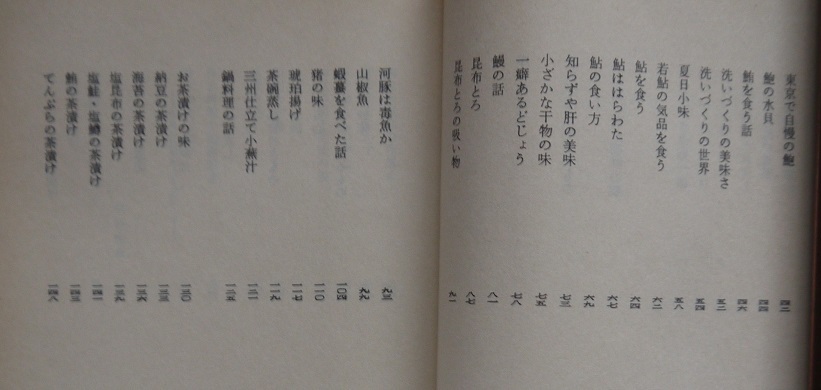 東京で自慢の鮑 四二
鮑の水貝 四四
鮪を食う話 四六
洗いづくりの美味さ 五二
洗いづくりの世界 五四
夏日小味 五八
若鮎の気品を食う 六二
鮎を食う 六四
鮎ははらわた 六七
鮎の食い方 六九
知らずや肝の美味 七三
小ざかな干物の味 七五
一癖あるどじょう 七八
鰻の話 八一
昆布とろ 八七
昆布とろの吸い物 九一
河豚は毒魚か 九三
山椒魚 九九
蝦蟇を食べた話 一〇四
猪の味 一一〇
琥珀揚げ 一一七
茶碗蒸し 一一九
三州仕立て小蕪汁 一二一
鍋料理の話 一二五
お茶漬けの味 一三〇
納豆の茶漬け 一三三
海苔の茶漬け 一三六
塩昆布の茶漬け 一三九
塩鮭・塩鱒の茶漬け 一四一
鮪の茶漬け 一四三
てんぷらの茶漬け 一四八